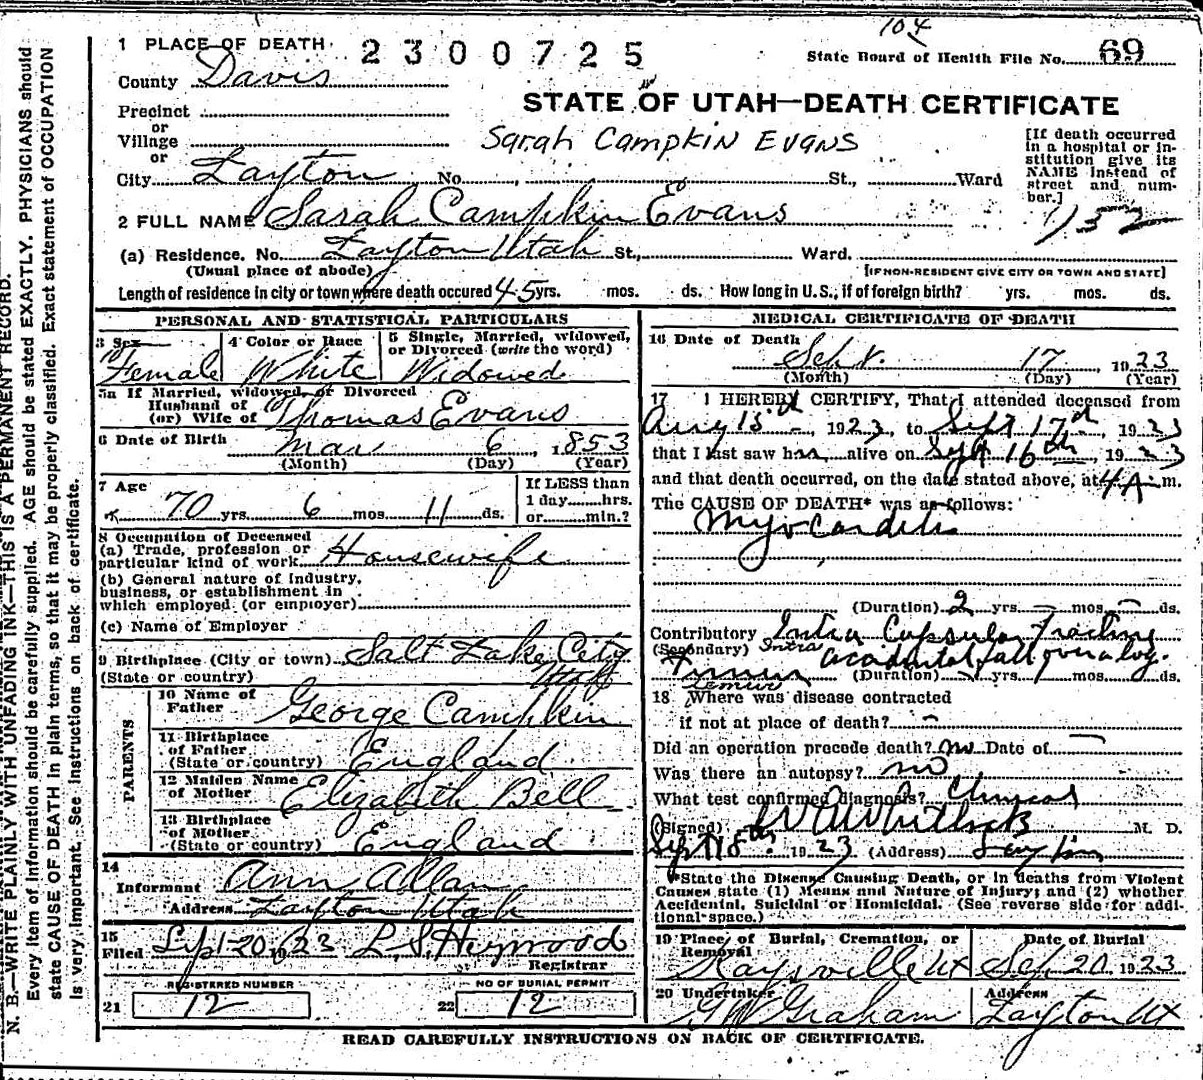 104
1 PLACE OF DEATH 2300725 State Board of Health File No. 69
County Davis
STATE OF UTAH—DEATH CERTIFICATE
Precinct
or
Village
or
Sarah Campkin Evans
[If death occurred in a hospital or institution give its NAME instead of street and number.]
City Layton No. St., Ward
2 FULL NAME Sarah Campkin Evans
132
(a) Residence. No. Layton Utah St., Ward.
(Usual place of abode) [IF NON-RESIDENT GIVE CITY OR TOWN AND STATE]
Length of residence in city or town where death occured 45 yrs. mos. ds. How long in U.S., if of foreign birth? yrs. mos. ds.
PERSONAL AND STATISTICAL PARTICULARS
3 Sex 4 Color or Race 5 Single, Married, Widowed, or Divorced (write the word)
Female White Widowed
5a If Married, widowed, or Divorced
Husband of
(or) Wife of Thomas Evans
6 Date of Birth Mar 6, 1853
(Month) (Day) (Year)
7 Age If LESS than
70 yrs. 6 mos. 11 ds. 1 day hrs.
or min.?
8 Occupation of Deceased
(a) Trade, profession or
particular kind of work Housewife
(b) General nature of Industry,
business, or establishment in
which employed (or employer)
(c) Name of Employer
9 Birthplace (City or town) Salt Lake City
(State or country) Utah
PARENTS
10 Name of
Father George Campkin
11 Birthplace
of Father
(State or country) England
12 Maiden Name
of Mother Elizabeth Bell
13 Birthplace
of Mother
(State or country) England
14
Informant Ann Allan
Address Layton Utah
15
Filed Sept 20 1923 L. S. Heywood
Registrar
REGISTERED NUMBER NO OF BURIAL PERMIT
21 12 22 12
MEDICAL CERTIFICATE OF DEATH
16 Date of Death
Sept. 17 1923
(Month) (Day) (Year)
17 I HEREBY CERTIFY, That I attended deceased from
Aug 15th, 1923, to Sept 17th, 1923
that I last saw her alive on Sept 16th, 1923
and that death occurred, on the date stated above, at 4 A m.
The CAUSE OF DEATH* was as follows:
Myocarditis
(Duration) 2 yrs. – mos. – ds.
Contributory Intra Capsular Fracture
(Secondary) Intra accidental fall over a log.
Femur (Duration) yrs. mos. ds.
Femur
18 Where was disease contracted
if not at place of death? –
Did an operation precede death? no Date of –
Was there an autopsy? no
What test confirmed diagnosis? Clinical
(Signed) W A Whitlock M. D.
Sept 18th 1923 (Address) Layton
*State the Disease Causing Death, or in deaths from Violent
Causes state (1) Means and Nature of Injury; and (2) whether
Accidental, Suicidal or Homicidal. (See reverse side for additional space.)
19 Place of Burial, Cremation, or Removal Date of Burial
Kaysville Ut Sep. 20 1923
20 Undertaker Address
GW Graham Layton Ut
READ CAREFULLY INSTRUCTIONS ON BACK OF CERTIFICATE.
N. B.—WRITE PLAINLY WITH UNFADING INK—THIS IS A PERMANENT RECORD.
Every item of information should be carefully supplied. AGE should be stated EXACTLY. PHYSICIANS should
state CAUSE OF DEATH in plain terms, so that it may be properly classified. Exact statement of OCCUPATION
is very important. See instructions on back of certificate.